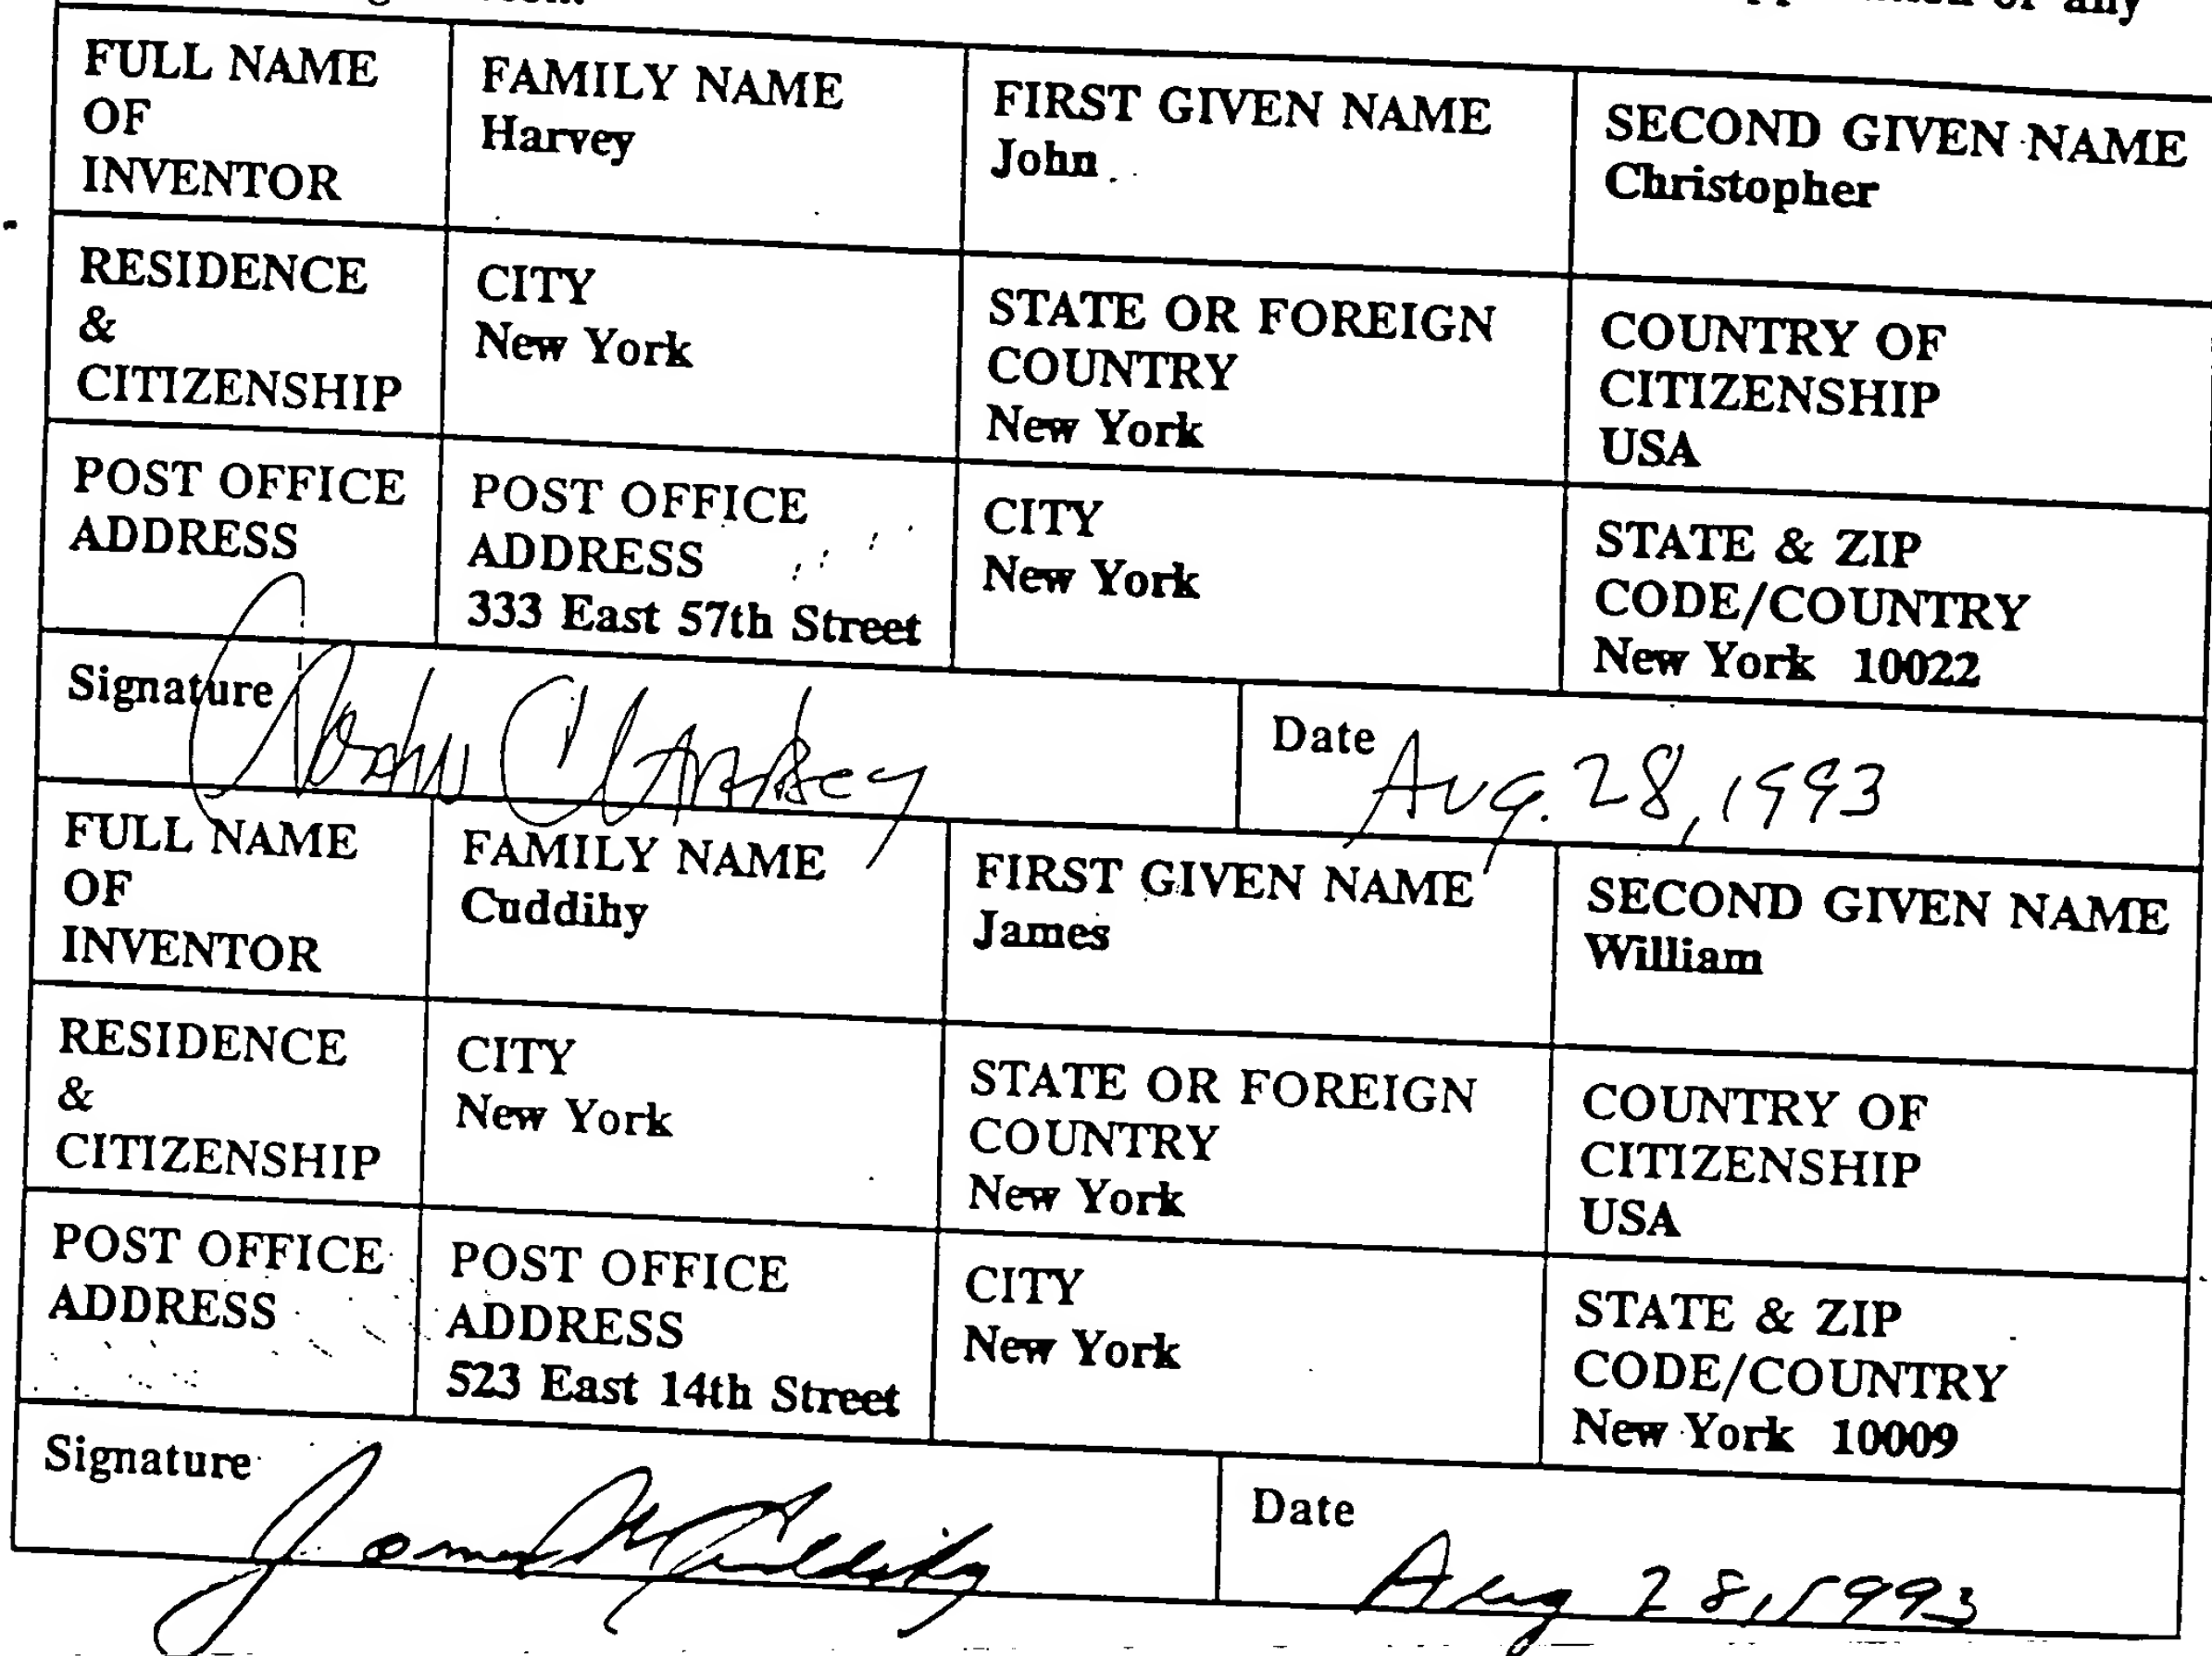 or any
FULL NAME
OF
INVENTOR
FAMILY NAME
Harvey
FIRST GIVEN NAME
John
SECOND GIVEN NAME
Christopher
RESIDENCE
&
CITIZENSHIP
CITY
New York
STATE OR FOREIGN
COUNTRY
New York
COUNTRY OF
CITIZENSHIP
USA
POST OFFICE
ADDRESS
POST OFFICE
ADDRESS
333 East 57th Street
CITY
New York
STATE & ZIP
CODE/COUNTRY
New York 10022
Signature
John C Harvey
Date
Aug. 28, 1993
FULL NAME
OF
INVENTOR
FAMILY NAME
Cuddihy
FIRST GIVEN NAME
James
SECOND GIVEN NAME
William
RESIDENCE
&
CITIZENSHIP
CITY
New York
STATE OR FOREIGN
COUNTRY
New York
COUNTRY OF
CITIZENSHIP
USA
POST OFFICE
ADDRESS
POST OFFICE
ADDRESS
523 East 14th Street
CITY
New York
STATE & ZIP
CODE/COUNTRY
New York 10009
Signature
James W Cuddihy
Date
Aug 28, 1993